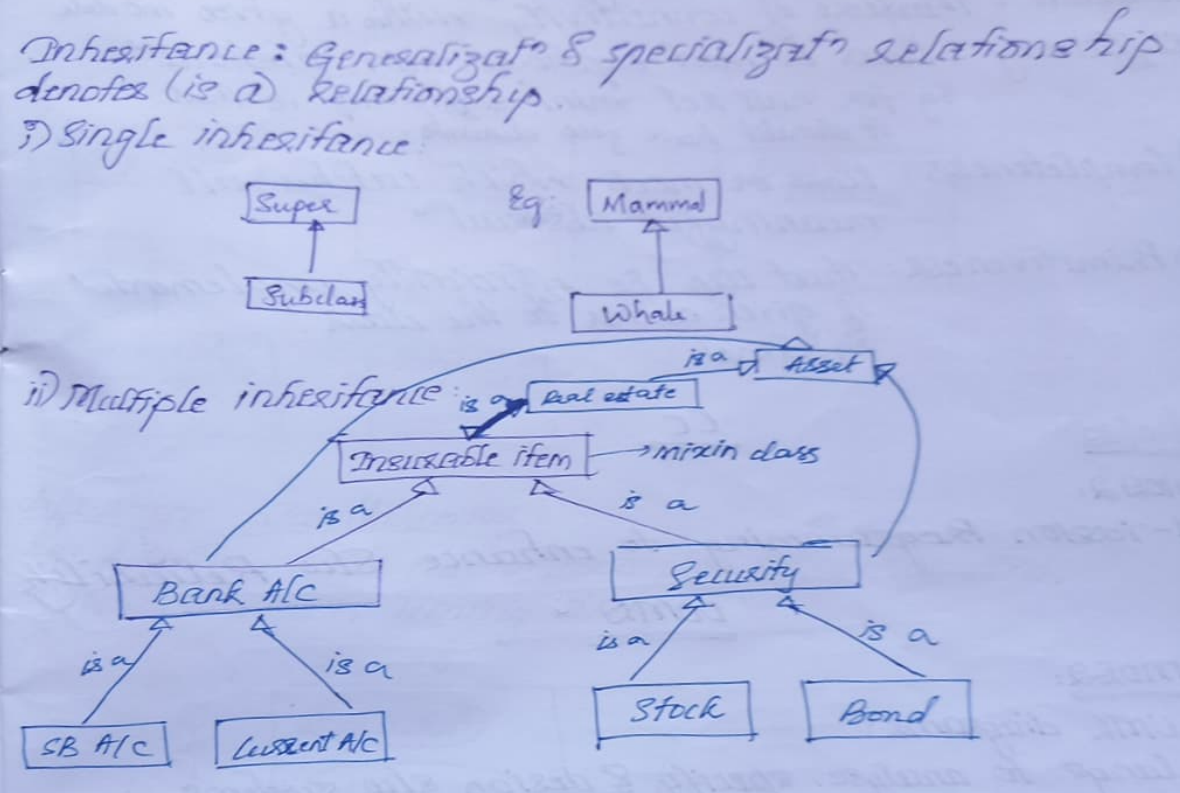 Inheritance: Generalizatⁿ & specializatⁿ relationship
denotes (is a) Relationship
i) Single inheritance
Super
Eg.
Mammal
Subclass
Whale
ii) Multiple inheritance:
is a
Real estate
is a
Asset
Insurable item
→mixin class
is a
is a
Bank A/c
Security
is a
is a
is a
is a
SB A/c
Current A/c
Stock
Bond